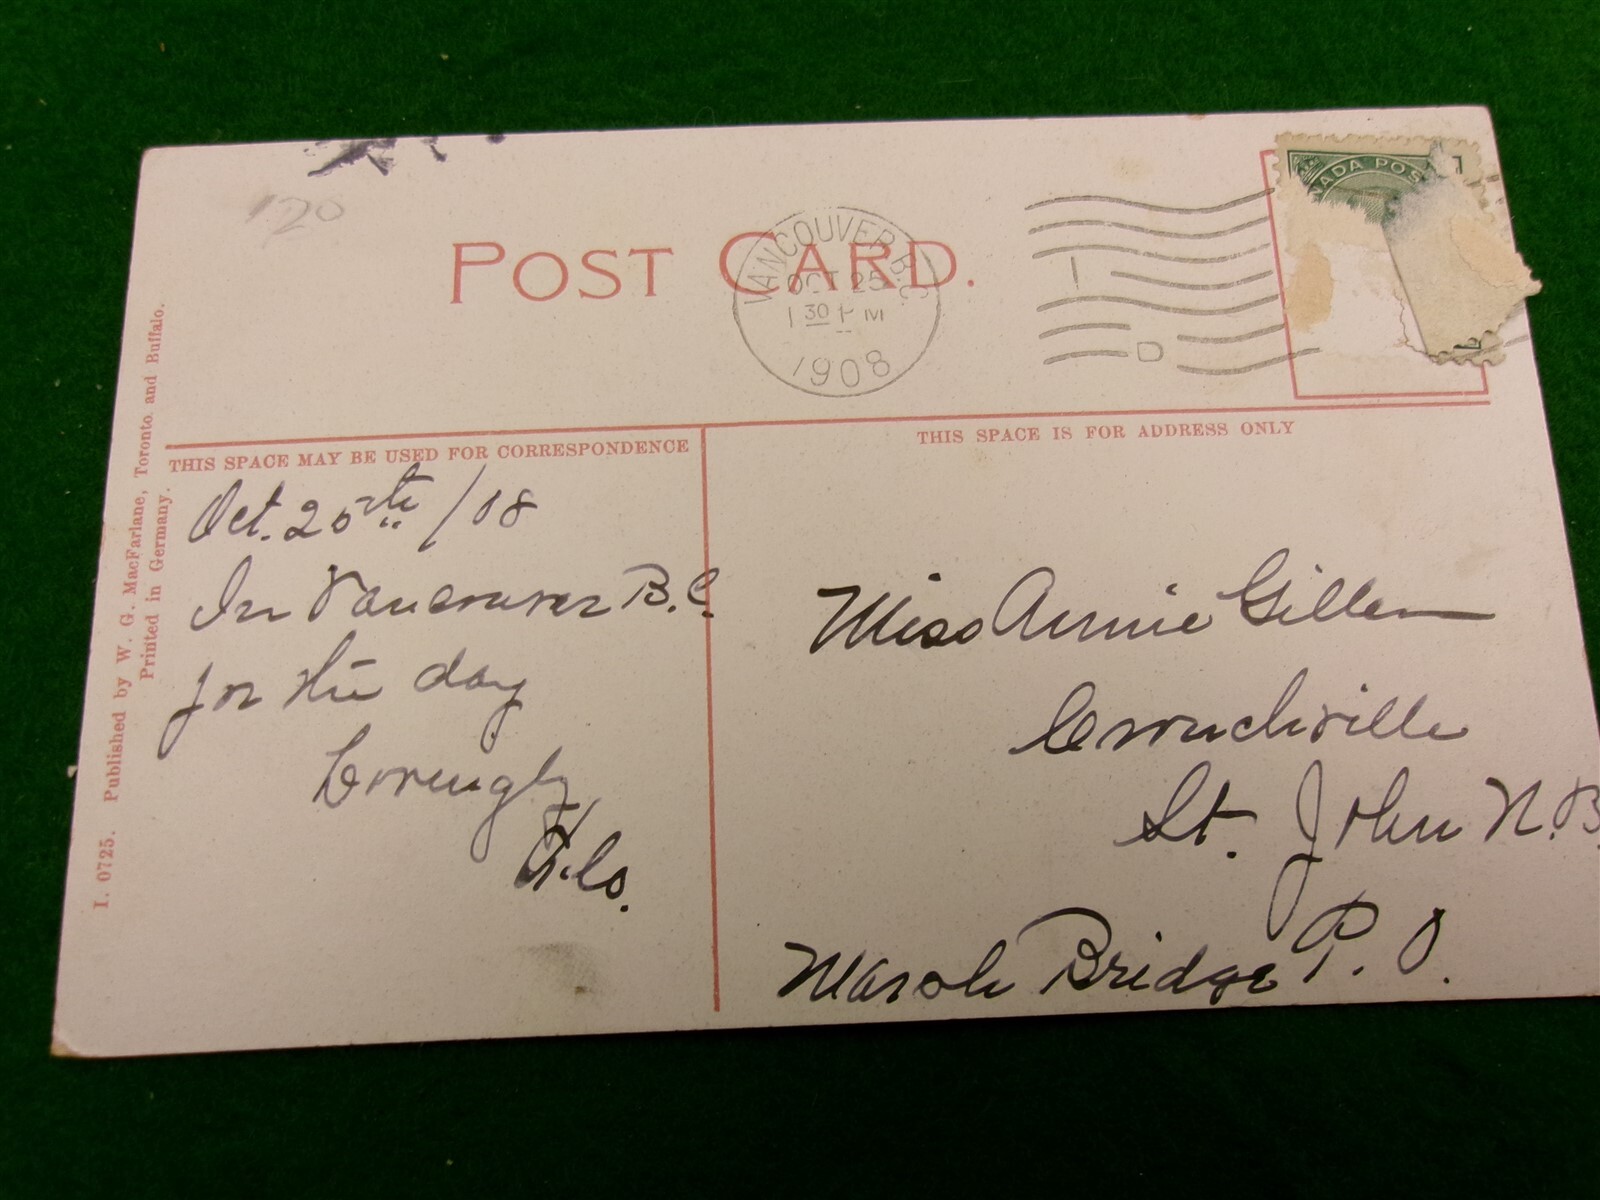 120
POST CARD.
VANCOUVER B.C.
OCT 25
1 30 P M
1908
1
D
NADA POS
THIS SPACE MAY BE USED FOR CORRESPONDENCE
THIS SPACE IS FOR ADDRESS ONLY
Oct. 25th /08
In Vancouver B.C.
for the day
Miss Annie Gillen
Crouchville
St. John N.B.
Marsh Bridge P.O.
I. 0725. Published by W. G. MacFarlane, Toronto and Buffalo.
Printed in Germany.